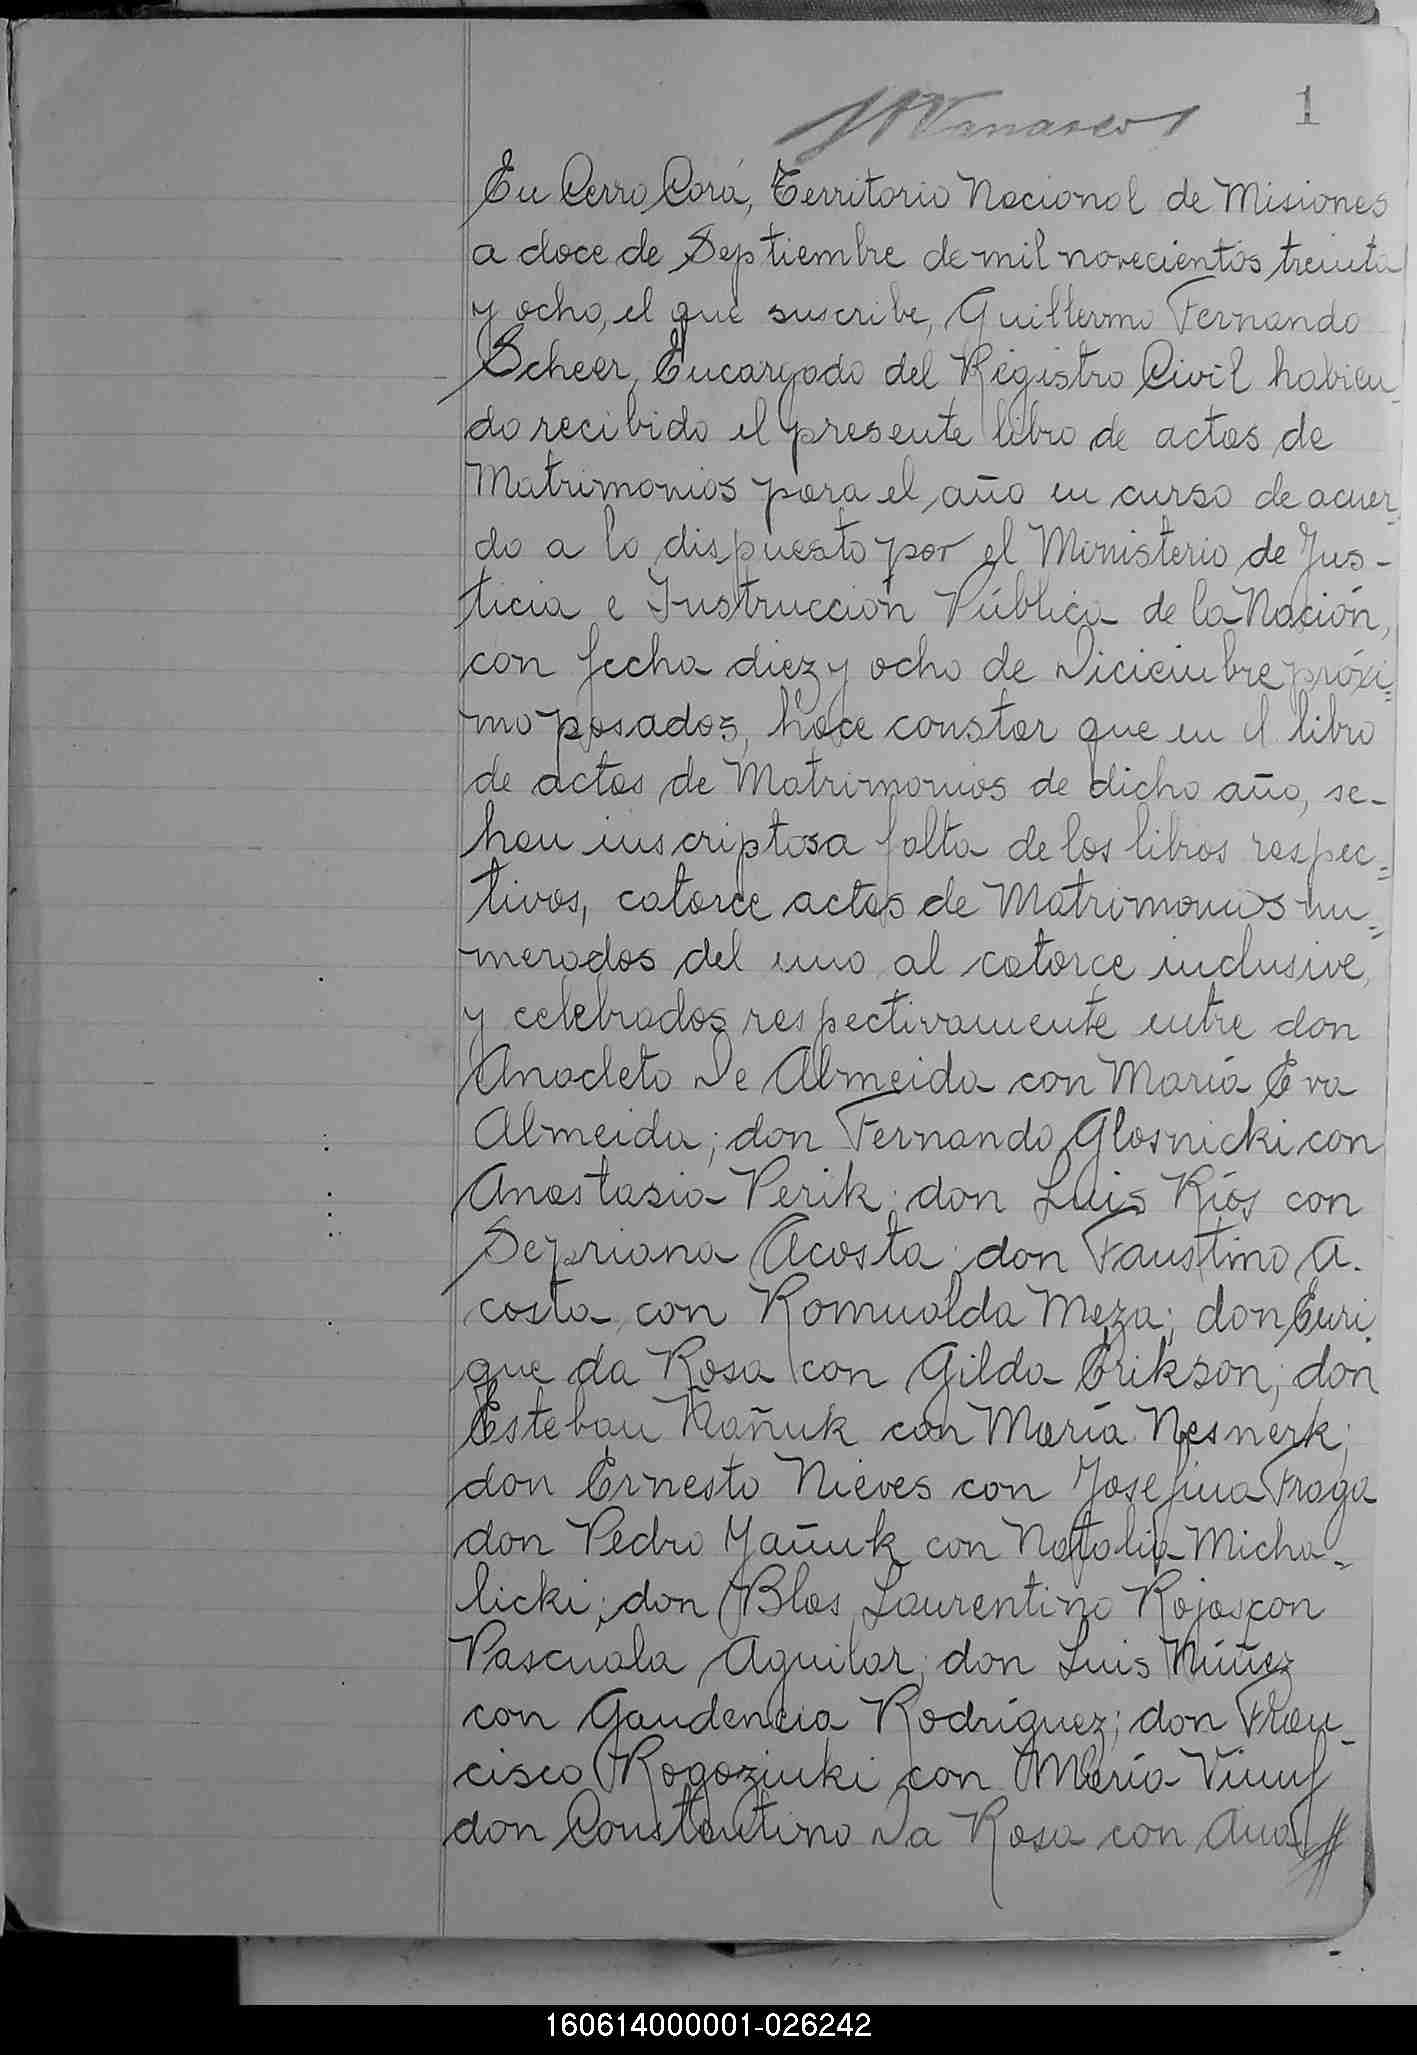 1
En Cerro Corá, Territorio Nacional de Misiones
a doce de Septiembre de mil novecientos treinta
y ocho, el que suscribe, Guillermo Fernando
Scheer, Encargado del Registro Civil habien-
do recibido el presente libro de actas de
Matrimonios para el año en curso de acuer-
do a lo dispuesto por el Ministerio de Jus-
ticia e Instrucción Pública de la Nación,
con fecha diez y ocho de Diciembre próxi-
mo pasados, hace constar que en el libro
de actas de Matrimonios de dicho año, se-
han inscriptos a falta de los libros respec-
tivos, catorce actas de Matrimonios nu-
merados del uno al catorce inclusive,
y celebrados respectivamente entre don
Anacleto De Almeida con María Eva
Almeida; don Fernando Glosnicki con
Anastasia Perik; don Luis Ríos con
Sepriana Acosta; don Faustino A-
costa con Romualda Meza; don Enri-
que da Rosa con Gilda Erikson; don
Esteban Ñañuk con María Nesnerk;
don Ernesto Nieves con Josefina Fraga
don Pedro Yañuk con Natalia Micha-
licki; don Blas Laurentino Rojas con
Pascuala Aguilar; don Luis Núñez
con Gaudencia Rodríguez; don Fran-
cisco Rogozinki con María
don Constantino Da Rosa con Ana
160614000001-026242